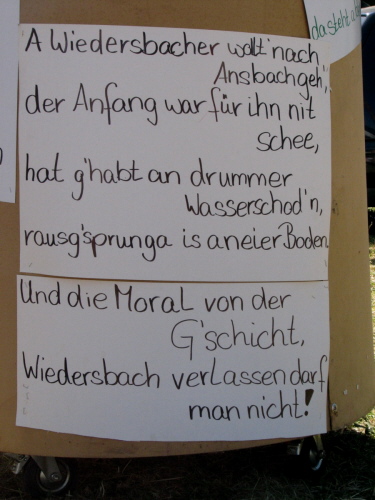 A Wiedersbacher wollt' nach
Ansbach geh',
der Anfang war für ihn nit
schee,
hat g'habt an drummer
Wasserschod'n,
rausg'sprunga is a neier Boden
Und die Moral von der
G'schicht,
Wiedersbach verlassen darf
man nicht!
da steht